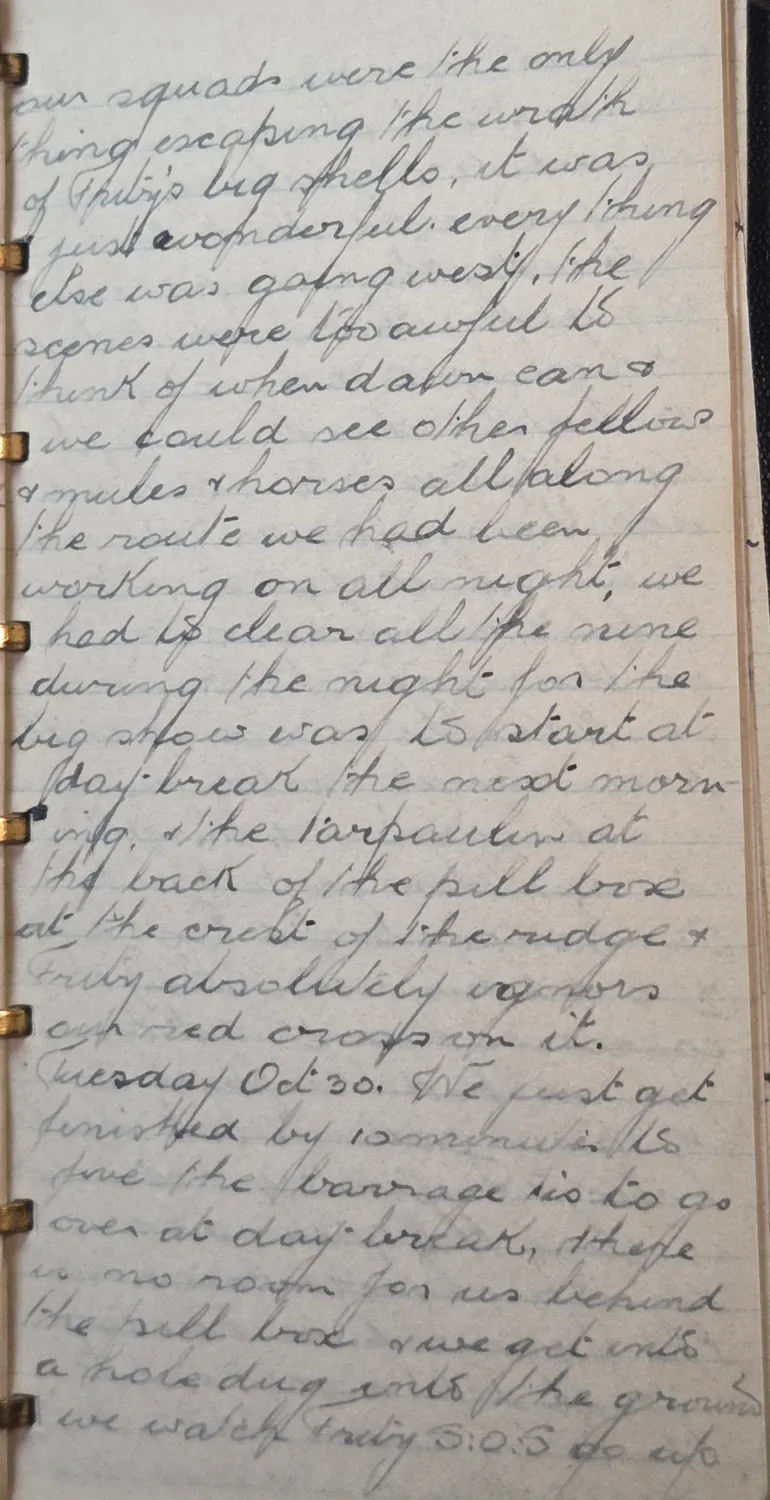 our squads were the only
thing escaping the wrath
of Fritz's big shells, it was
just wonderful. every thing
else was going west, the
scenes were too awful to
think of when dawn cam &
we could see other fellows
& mules & horses all along
the route we had been
working on all night, we
had to clear all the nine
during the night for the
big show was to start at
day-break the next morn-
ing. & the tarpaulin at
the back of the pill box
at the crest of the ridge &
Fritz absolutely ignors
our red cross on it.
Tuesday Oct 30. We just get
finished by 10 minutes to
five the barrage is to go
over at day-break, there
is no room for us behind
the pill box & we get into
a hole dug into the ground
we watch Fritz S:O:S go up